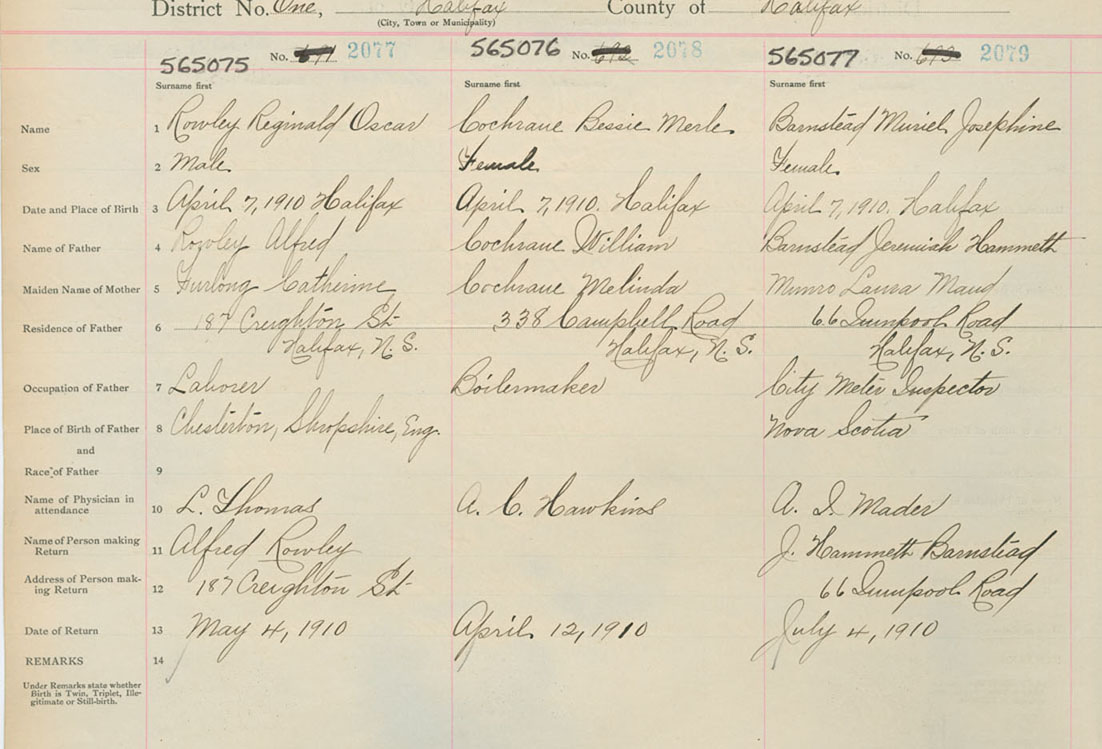 District No. One, Halifax County of Halifax
(City, Town or Municipality)
565075 No. 671 2077 565076 No. 672 2078 565077 No. 673 2079
Surname first Surname first Surname first
Name 1 Rowley Reginald Oscar Cochrane Bessie Merle. Barnstead Muriel Josephine
Sex 2 Male. Female. Female.
Date and Place of Birth 3 April 7, 1910 Halifax April 7, 1910. Halifax April 7, 1910. Halifax
Name of Father 4 Rowley Alfred Cochrane William Barnstead Jeremiah Hammeth
Maiden Name of Mother 5 Furlong Catherine Cochrane Melinda Munro Laura Maud
Residence of Father 6 187 Creighton St 338 Campbell Road 66 Quinpool Road
Halifax, N.S. Halifax, N.S. Halifax, N.S.
Occupation of Father 7 Laborer Boilermaker City Meter Inspector
Place of Birth of Father 8 Chesterton, Shropshire, Eng. Nova Scotia
and
Race of Father 9
Name of Physician in
attendance 10 L. Thomas A. C. Hawkins A. I. Mader
Name of Person making
Return 11 Alfred Rowley J. Hammeth Barnstead
Address of Person mak-
ing Return 12 187 Creighton St 66 Quinpool Road
Date of Return 13 May 4, 1910 April 12, 1910 July 4, 1910
REMARKS 14
Under Remarks state whether
Birth is Twin, Triplet, Ille-
gitimate or Still-birth.